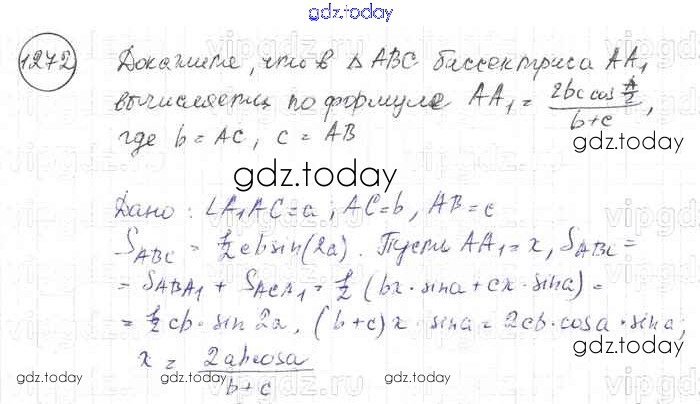 gdz.today
1272 Докажите, что в △ ABC бассектриса AA₁
вычисляется по формуле AA₁ = 2bc cos A/2 / b+c,
где b = AC, c = AB
gdz.today
gdz.today
Дано: ∠A₁AC=a; AC=b, AB=c
S_ABC = 1/2 cb sin(2a). Пусть AA₁=x, S_ABC =
= S_ABA₁ + S_ACA₁ = 1/2 (bx·sina+cx·sina) =
= 1/2 cb·sin 2a, (b+c)x·sina=2cb·cosa·sina;
x = 2abcosa / b+c
gdz.today
gdz.today
gdz.today